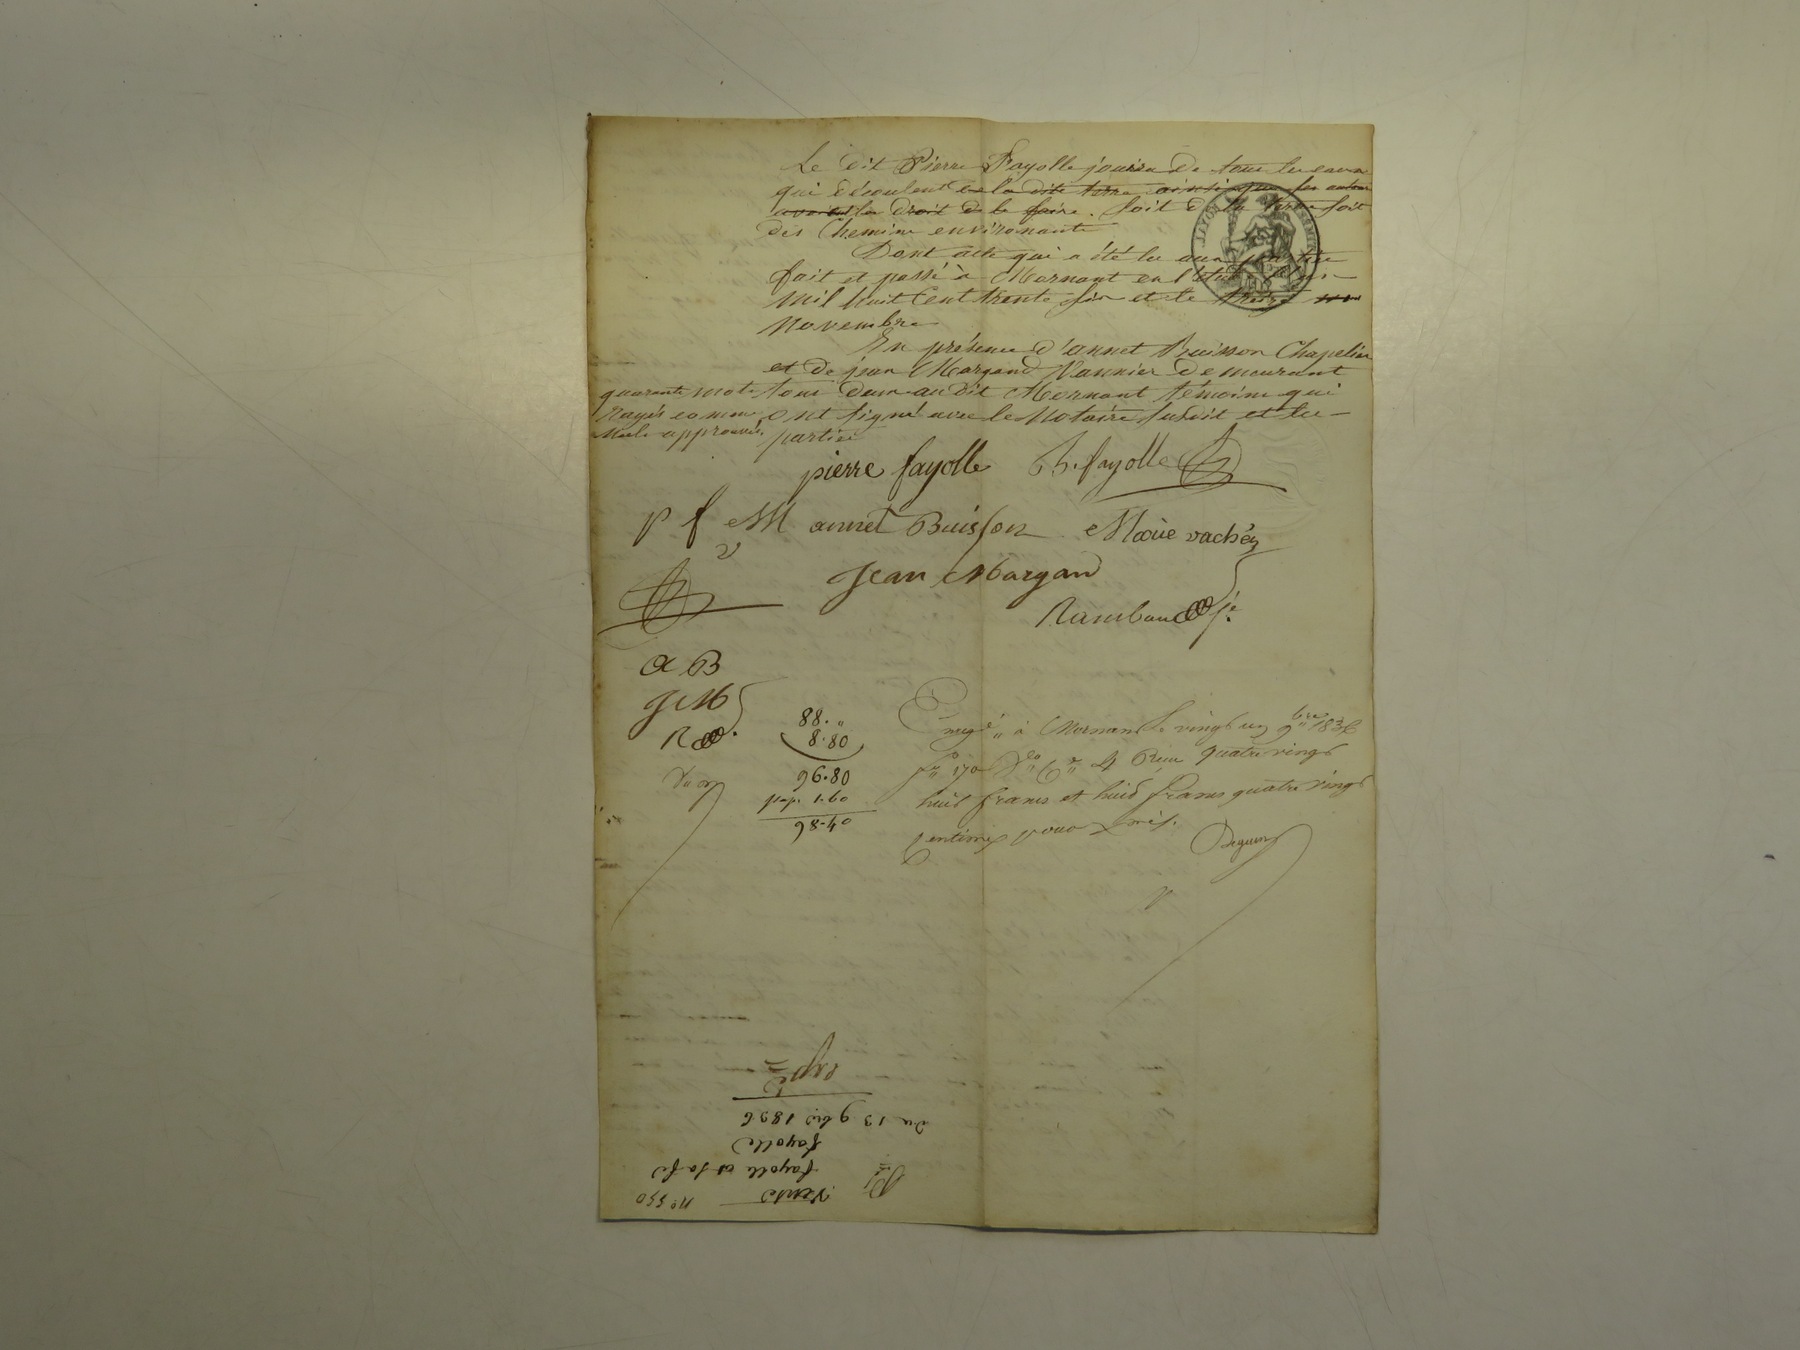 Le dit Pierre Fayolle jouira de tous les eaux
qui découlent de la dite terre ainsi que les autres
avoient le droit de le faire. Soit de la terre soit
des Chemins environants
Dont acte qui a été lu aux parties
fait et passé à Mornant en l'étude l'an
mil huit Cent trente six et le treize
Novembre
En présence d'annet Buisson Chapelier
et de jean Margand Vannier demeurant
tous deux audit Mornant témoins qui
ont signé avec le Notaire susdit et les
parties
quarante mots
rayés comme
nuls approuvés.
pierre fayolle B. fayolle
p f M annet Buisson Marie vachez
v
Jean Margand
Rambaud
a B
J M
R
88. "
8.80
96.80
pap. 1.60
98.40
Enregé. à Mornant le vingt un 9bre 1836
fo 170 Ro Ce 4 Reçu quatre vingt
huit francs et huit francs quatre vingt
centimes pour
Deguen
No 550
Vente
fayolle et sa fe
fayolle
Du 13 9bre 1836
Expé